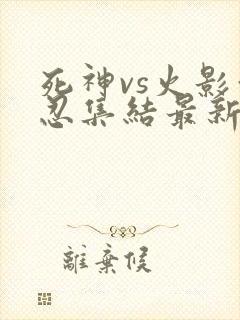 死神vs火影
忍集結最新
離棄候